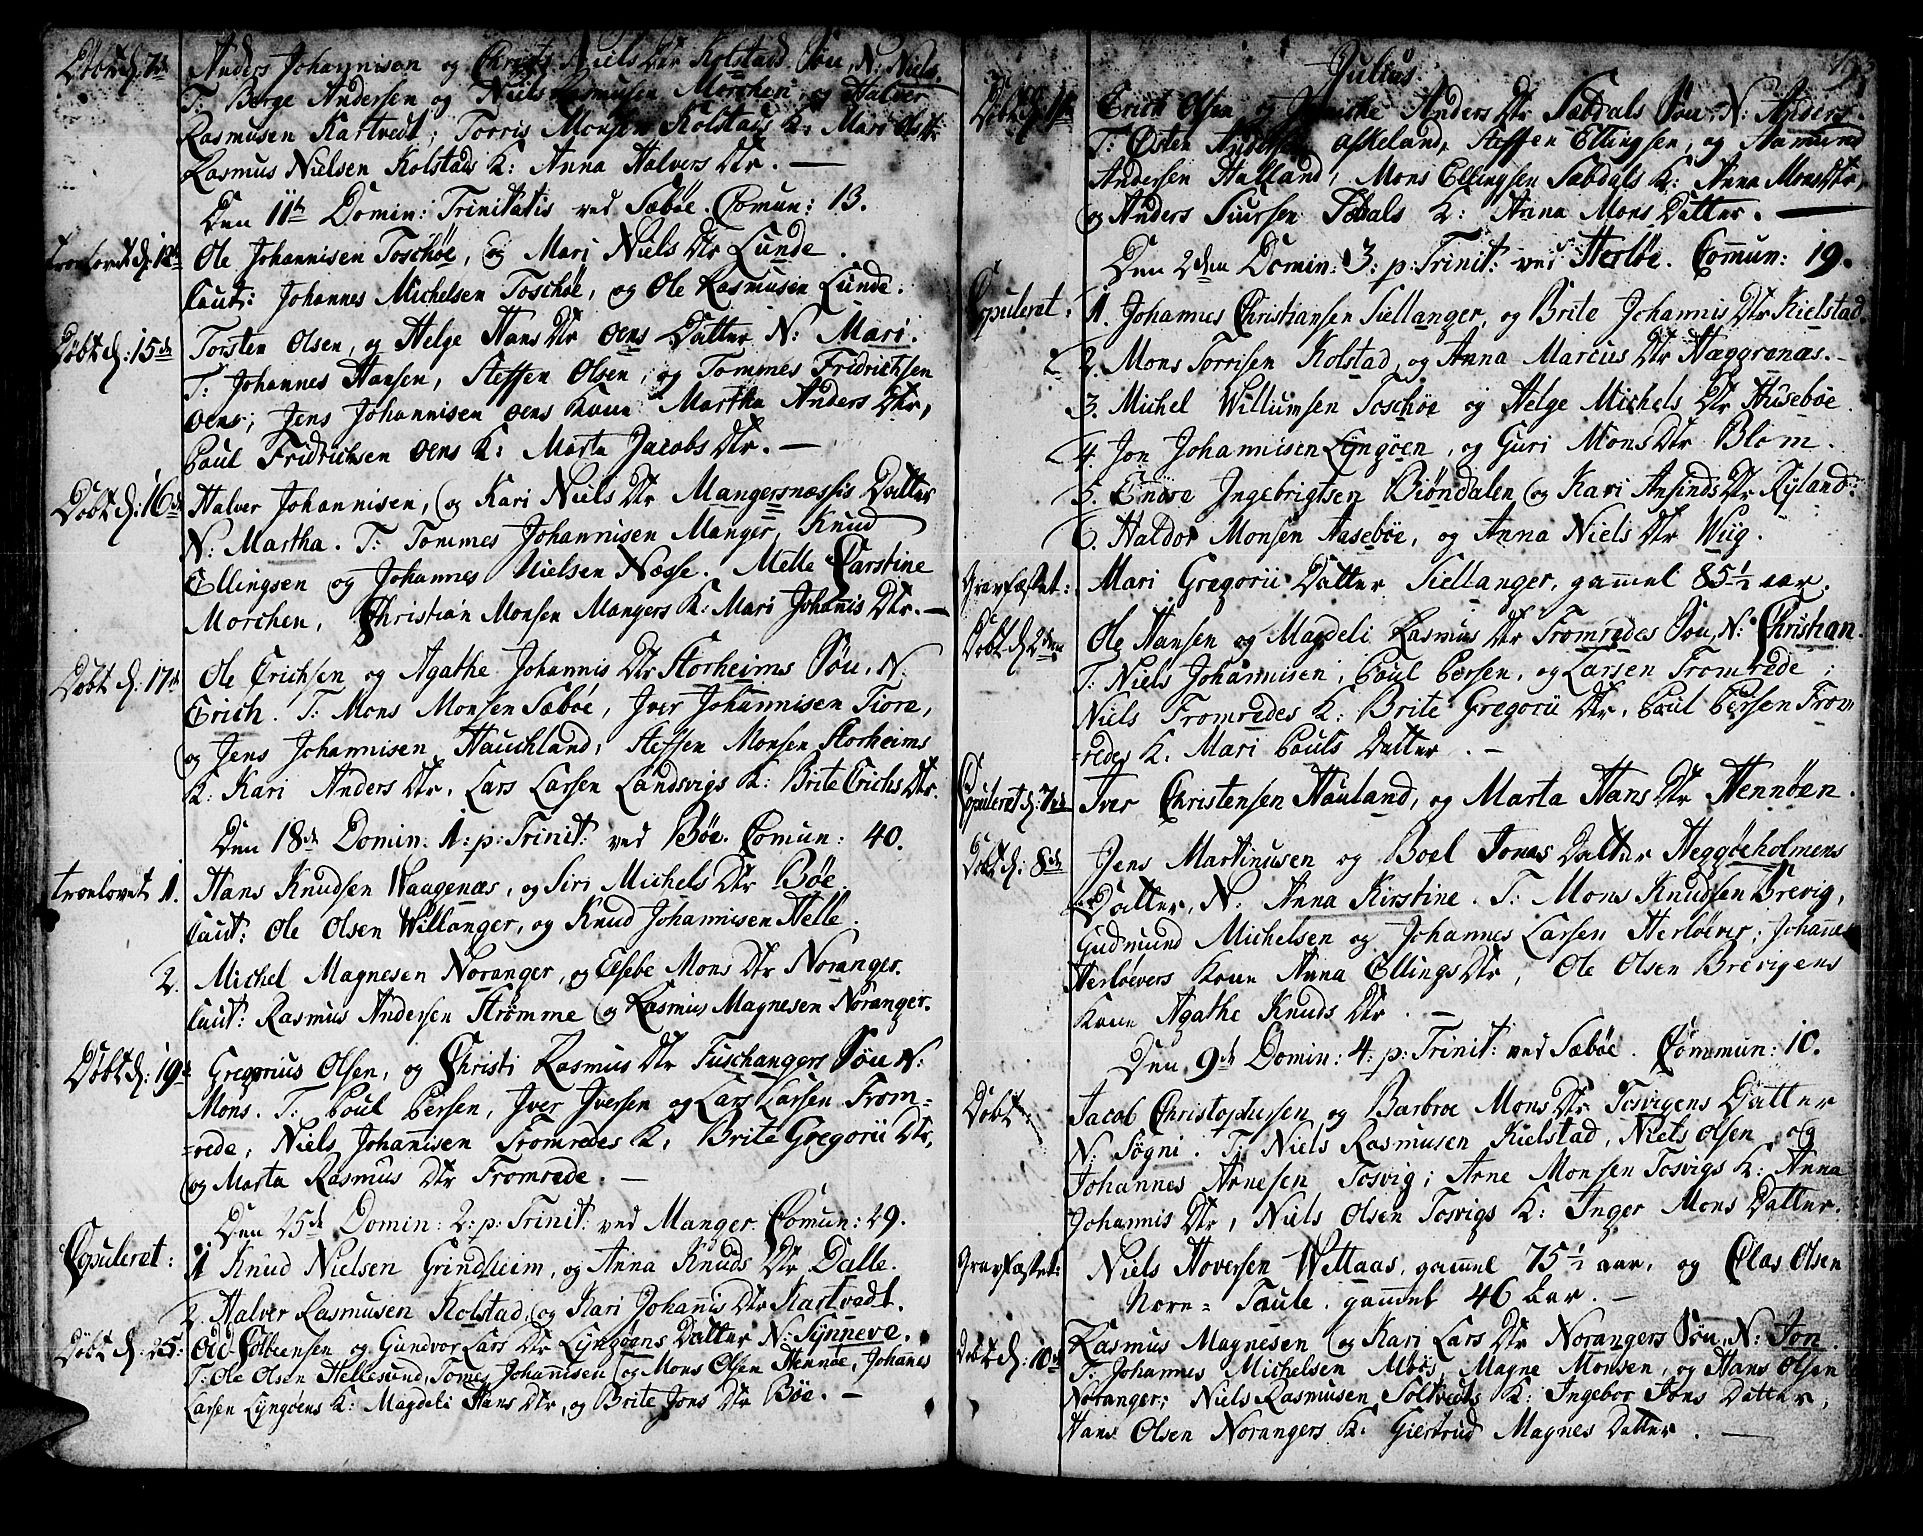 Döbt d: 7de Anders Johannisen og Christi Niels Dtr Kolstads Sön, N: Niels.
T: Berge Andersen og Niels Rasmusen Morchen, og Halver
Rasmusen Kartvedt; Torris Monsen Kolstads K: Mari Ols Dtr
Rasmus Nielsen Kolstads K: Anna Halvers Dtr. —
Den 11te Domin: Trinitatis ved Sæböe. Comun: 13.
Troelovet d: Ole Johannisen Toschöe, og Mari Niels Dtr Lunde.
Caut: Johannes Michelsen Toschöe, og Ole Rasmusen Lunde.
Döbt d: 15de Torsten Olsen, og Helge Hans Dtr Oens Datter N: Mari.
T: Johannes Hansen, Steffen Olsen, og Tommes Fridrichsen
Oens; Jens Johannisen Oens Kone Martha Anders Dtr,
Poul Fridrichsen Oens K: Marta Jacobs Dtr. —
Döbt d: 16de Halver Johannisen, og Kari Niels Dtr Mangersnæssis Datter
N: Martha. T: Tommes Johannisen Manger, Knud
Ellingsen og Johannes Nielsen Næsse. Melle Carstine
Morchen, Christian Monsen Mangers K: Mari Johannis Dtr. —
Döbt d: 17de Ole Erichsen og Agathe Johannis Dtr Storheims Sön, N:
Erich. T: Mons Monsen Sæböe, Jver Johannisen Fiore,
og Jens Johannisen Hauchland, Steffen Monsen Storheims
K: Kari Anders Dtr, Lars Larsen Landsvigs K: Brite Erichs Dtr.
Den 18de Domin: 1: p: Trinit: ved Böe. Comun: 40.
Troelovet 1. Hans Knudsen Waagenæs, og Siri Michels Dtr Böe.
Caut: Ole Olsen Willanger, og Knud Johannisen Helle.
2. Michel Magnesen Noranger, og Elsebe Mons Dtr Noranger.
Caut: Rasmus Andersen Strömme og Rasmus Magnesen Noranger.
Döbt d: 19de Gregorius Olsen, og Christi Rasmus Dtr Tuschangers Sön N:
Mons. T: Poul Persen, Jver Jversen og Lars Larsen From=
=rede, Niels Johannisen Fromredes K: Brite Gregorii Dtr,
og Marta Rasmus Dtr Fromrede. —
Den 25de Domin: 2: p: Trinit: ved Manger. Comun: 29.
Copuleret: 1 Knud Nielsen Grindheim, og Anna Knuds Dtr Dalle.
2. Halver Rasmusen Kolstad, og Kari Johanis Dtr Kartvedt.
Döbt d: 25: Ole Colbensen og Gundvor Lars Dtr Lyngöens Datter N: Synneve.
T: Ole Olsen Hellesund, Tomes Johannisen og Mons Olsen Hennöe, Johanes
Larsen Lyngöens K: Magdeli Hans Dtr, og Brite Jons Dtr Böe. —
Julius.
Döbt d: 1te Erich Olsen og Anders Dtr Sæbdals Sön, N: Anders.
T: Östen Askeland, Steffen Ellingsen, og Aamund
Andersen Halland, Mons Ellingsen Sæbdals K: Anna Mons Dtr,
og Anders Siursen Sæbdals K: Anna Mons Datter. —
Den 2den Domin: 3: p: Trinit: ved Herlöe. Comun: 19.
Copuleret: 1. Johannes Christiansen Siellanger, og Brite Johannis Dtr Kielstad.
2. Mons Torrisen Kolstad, og Anna Marcus Dtr Hæggrenæs. —
3. Michel Willumsen Toschöe og Helge Michels Dtr Husebøe.
4. Jon Johannisen Lyngöen, og Guri Mons Dtr Blom.
5. Endre Ingebrigtsen Biöndalen og Kari Ansinds Dtr Ryland:
6. Haldor Monsen Aaseböe, og Anna Niels Dtr Wiig.
Gravfæstet: Mari Gregorii Datter Siellanger, gammel 85 1/2 aar.
Döbt d: 2den Ole Hansen og Magdeli Rasmus Dtr Fromredes Sön, N: Christian.
T: Niels Johannisen, Poul Persen, og Larsen Fromrede;
Niels Fromredes K: Brite Gregorii Dtr, Poul Persen From
=redes K: Mari Pouls Datter. —
Copuleret d: 7de Jver Christensen Hauland, og Marta Hans Dtr Hennöen.
Döbt d: 8de Jens Martinusen og Boel Jonas Datter Heggöeholmens
Datter, N: Anna Kirstine. T: Mons Knudsen Brevig,
Gudmund Michelsen og Johannes Larsen Herlöever; Johannes
Herlöevers Kone Anna Ellings Dtr, Ole Olsen Brevigens
Kone Agathe Knuds Dtr. —
Den 9de Domin: 4: p: Trinit: ved Sæböe. Commun: 10.
Döbt Jacob Christophersen, og Barbroe Mons Dtr Tosvigens Datter
N: Sögni. T: Niels Rasmusen Kielstad, Niels Olsen, og
Johannes Arnesen Tosvig; Arne Monsen Tosvigs K: Anna
Johannis Dtr, Niels Olsen Tosvigs K: Inger Mons Datter.
Gravfæstet: Niels Hoversen Wettaas, gammel 75 1/2 aar, og Claas Olsen
Nore= Taule. gammel 46 aar. —
Döbt d: 10de Rasmus Magnesen og Kari Lars Dtr Norangers Sön, N: Jon
T: Johannes Michelsen Alböe, Magne Monsen, og Hans Olsen
Noranger; Niels Rasmusen Soltvedts K: Ingebor Jons Datter,
Hans Olsen Norangers K: Giertrud Magnes Datter. —